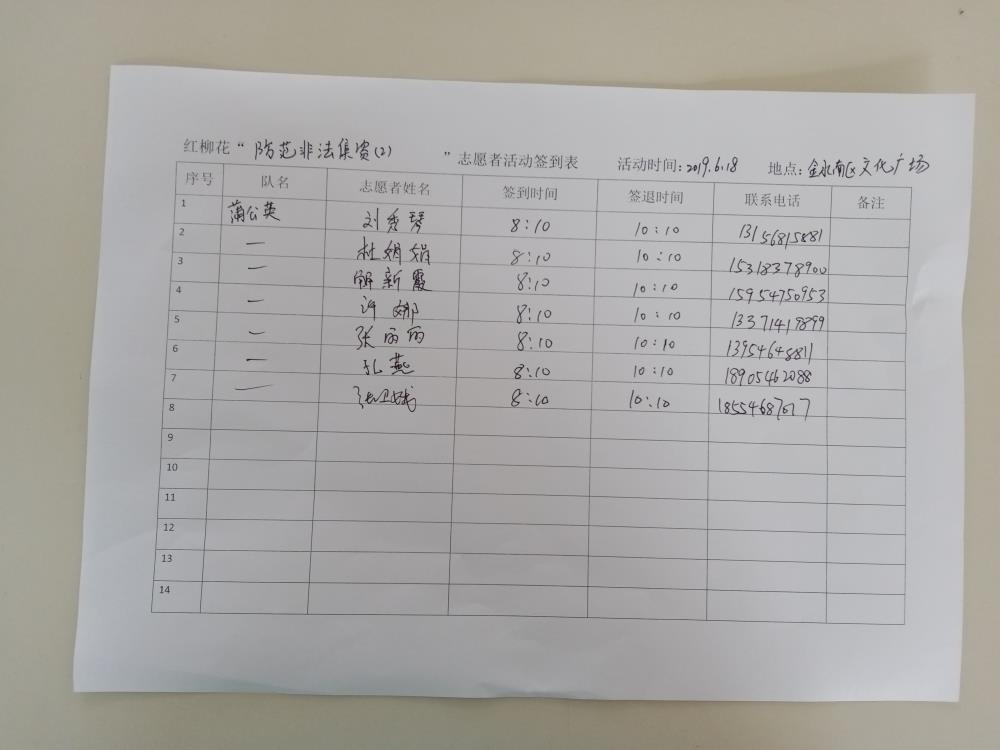 红柳花“防范非法集资(2)”志愿者活动签到表 活动时间:2019.6.18 地点:金水南区文化广场
序号 队名 志愿者姓名 签到时间 签退时间 联系电话 备注
1 蒲公英 刘秀琴 8:10 10:10 13156815881
2 — 杜娟娟 8:10 10:10 15318378900
3 — 解新霞 8:10 10:10 15954750953
4 — 许娜 8:10 10:10 13371419899
5 — 张丽丽 8:10 10:10 13954648811
6 — 孔燕 8:10 10:10 18905462088
7 — 8:10 10:10 18554687017
8
9
10
11
12
13
14